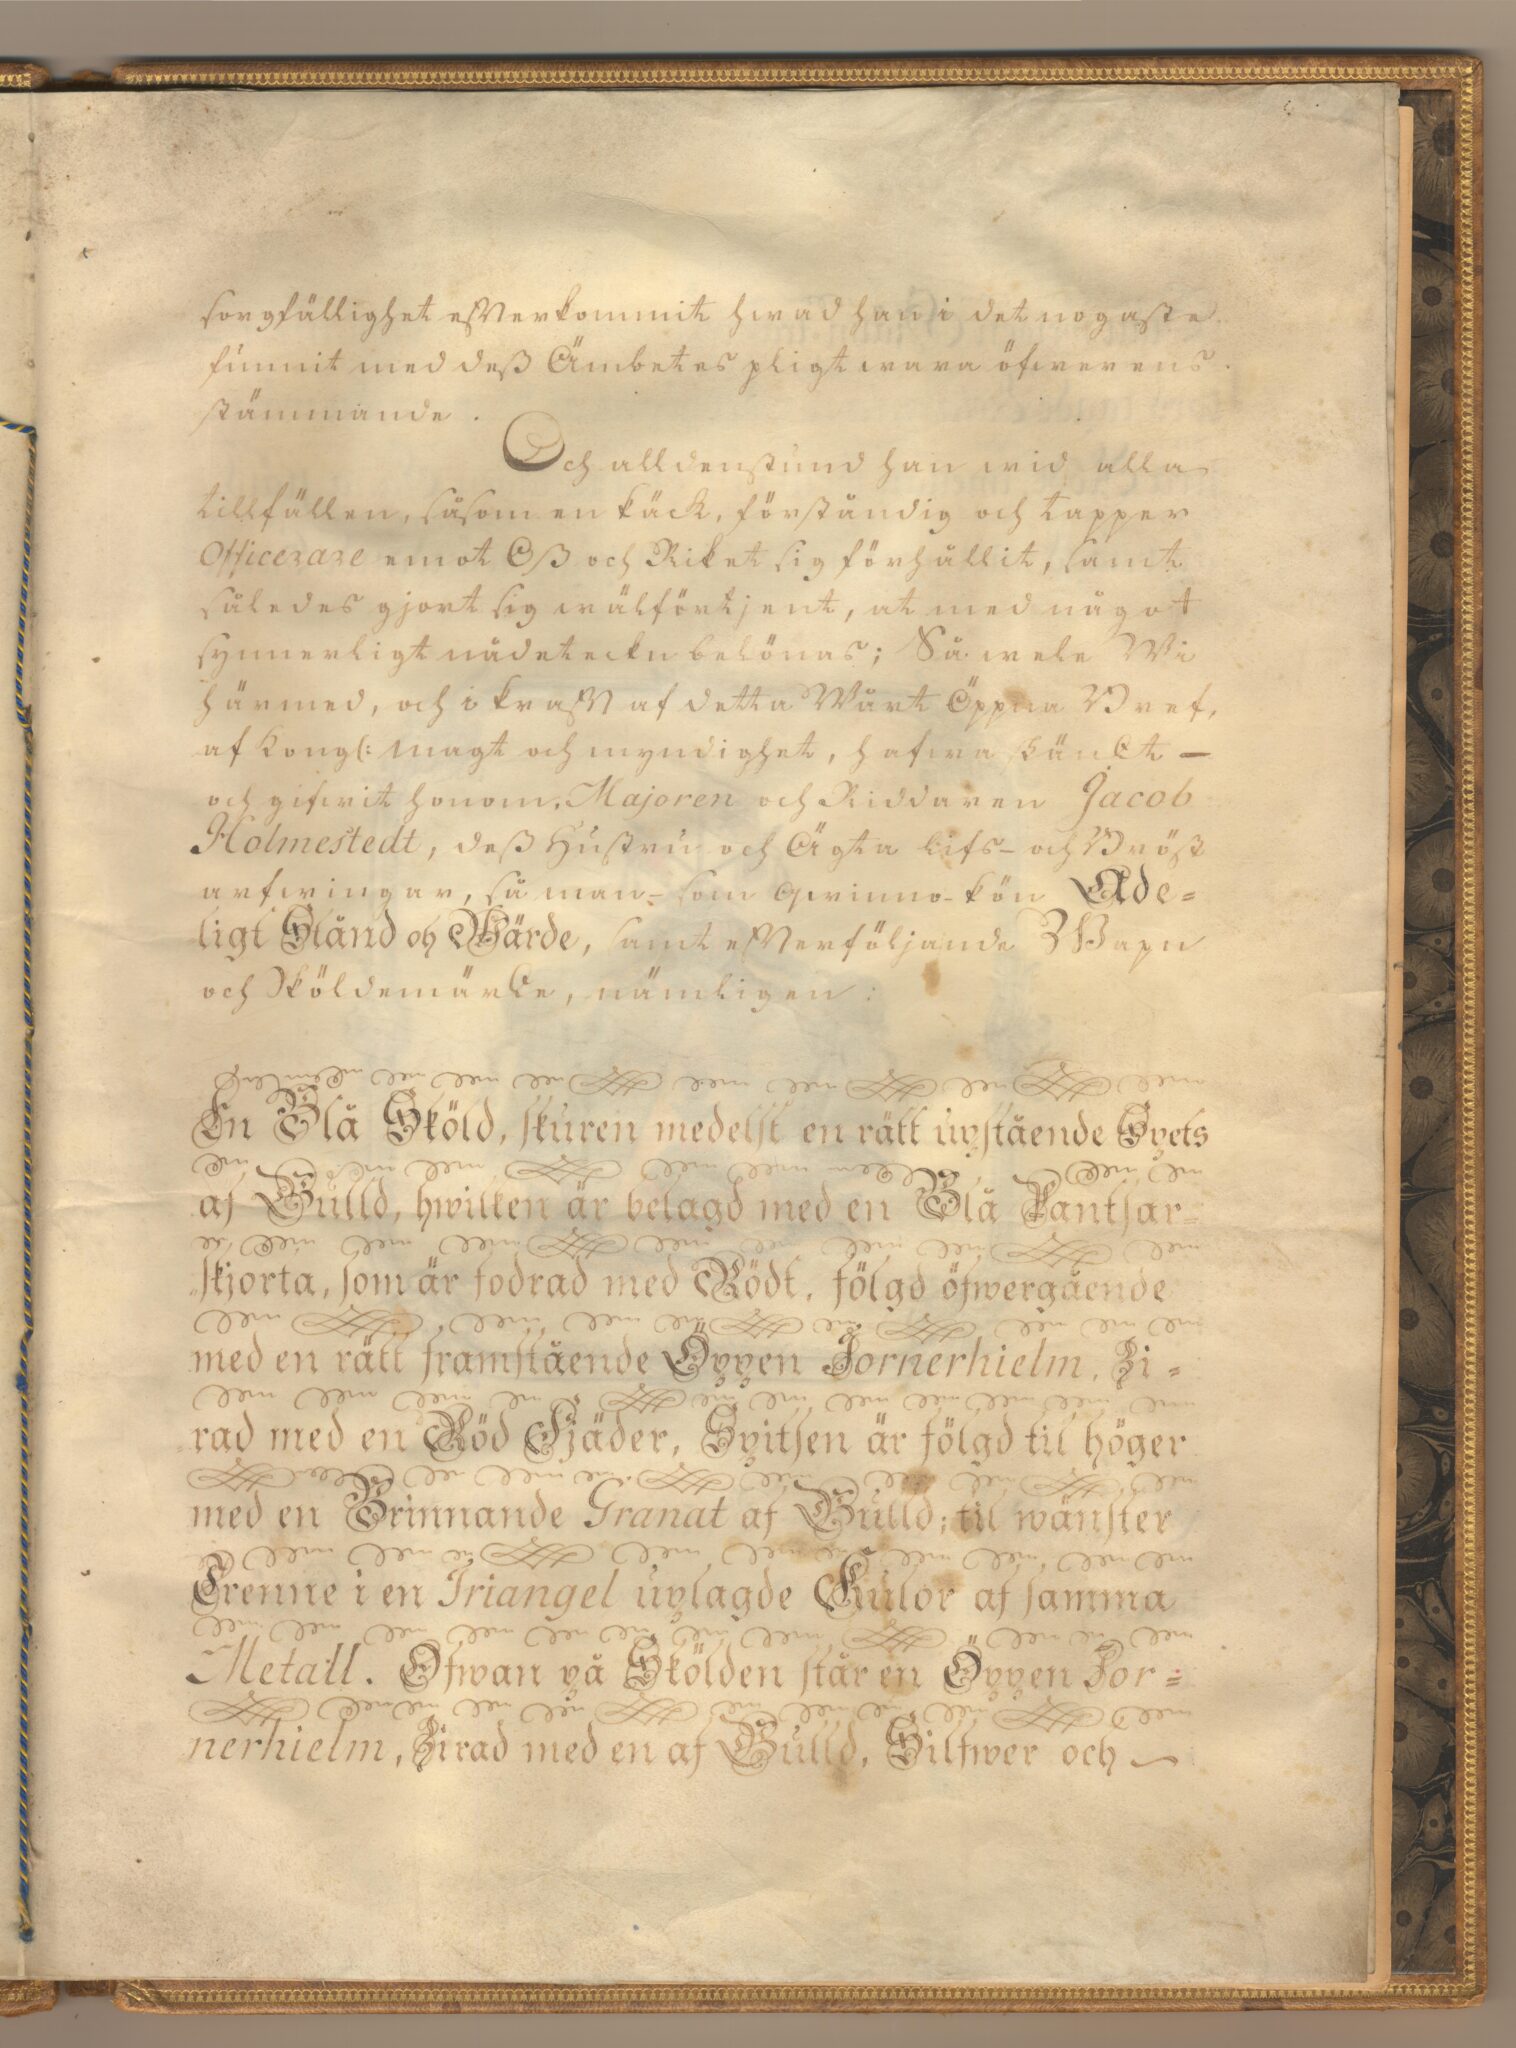 sorgfällighet efterkommit hwad han i det nogaste
funnit med deß Ämbetes pligt wara öfwerens
stämmande.
Och alldenstund han wid alla
tillfällen, såsom en käck, förståndig och tapper
Officerare emot Oß och Riket sig förhållit, samt
således gjort sig wälförtjent, at med något
synnerligt nådeteckn belönas; Så wele Wi
härmed, och i kraft af detta Wårt Öppna Bref,
af Kongl: Magt och myndighet, hafwa skänckt –
och gifwit honom, Majoren och Riddaren Jacob
Holmestedt, deß Hustru och Ägta lifs- och Bröst
arfwingar, så man- som qwinno-kön Ade=
ligt Stånd och Wärde, samt efterföljande Wapn
och Sköldemärke, nämligen:
En Blå Sköld, skuren medelst en rätt upstående Spets
af Gulld, hwilken är belagd med en Blå Pantsar=
skjorta, som är fodrad med Rödt, fölgd öfwergående
med en rätt framstående Öppen Tornerhielm, Zi=
rad med en Röd Fjäder, Spitsen är fölgd til höger
med en Brinnande Granat af Gulld; til wänster
Trenne i en Triangel uplagde Kulor af samma
Metall. Ofwan på Skölden står en Öppen Tor=
nerhielm, Zirad med en af Gulld, Silfwer och